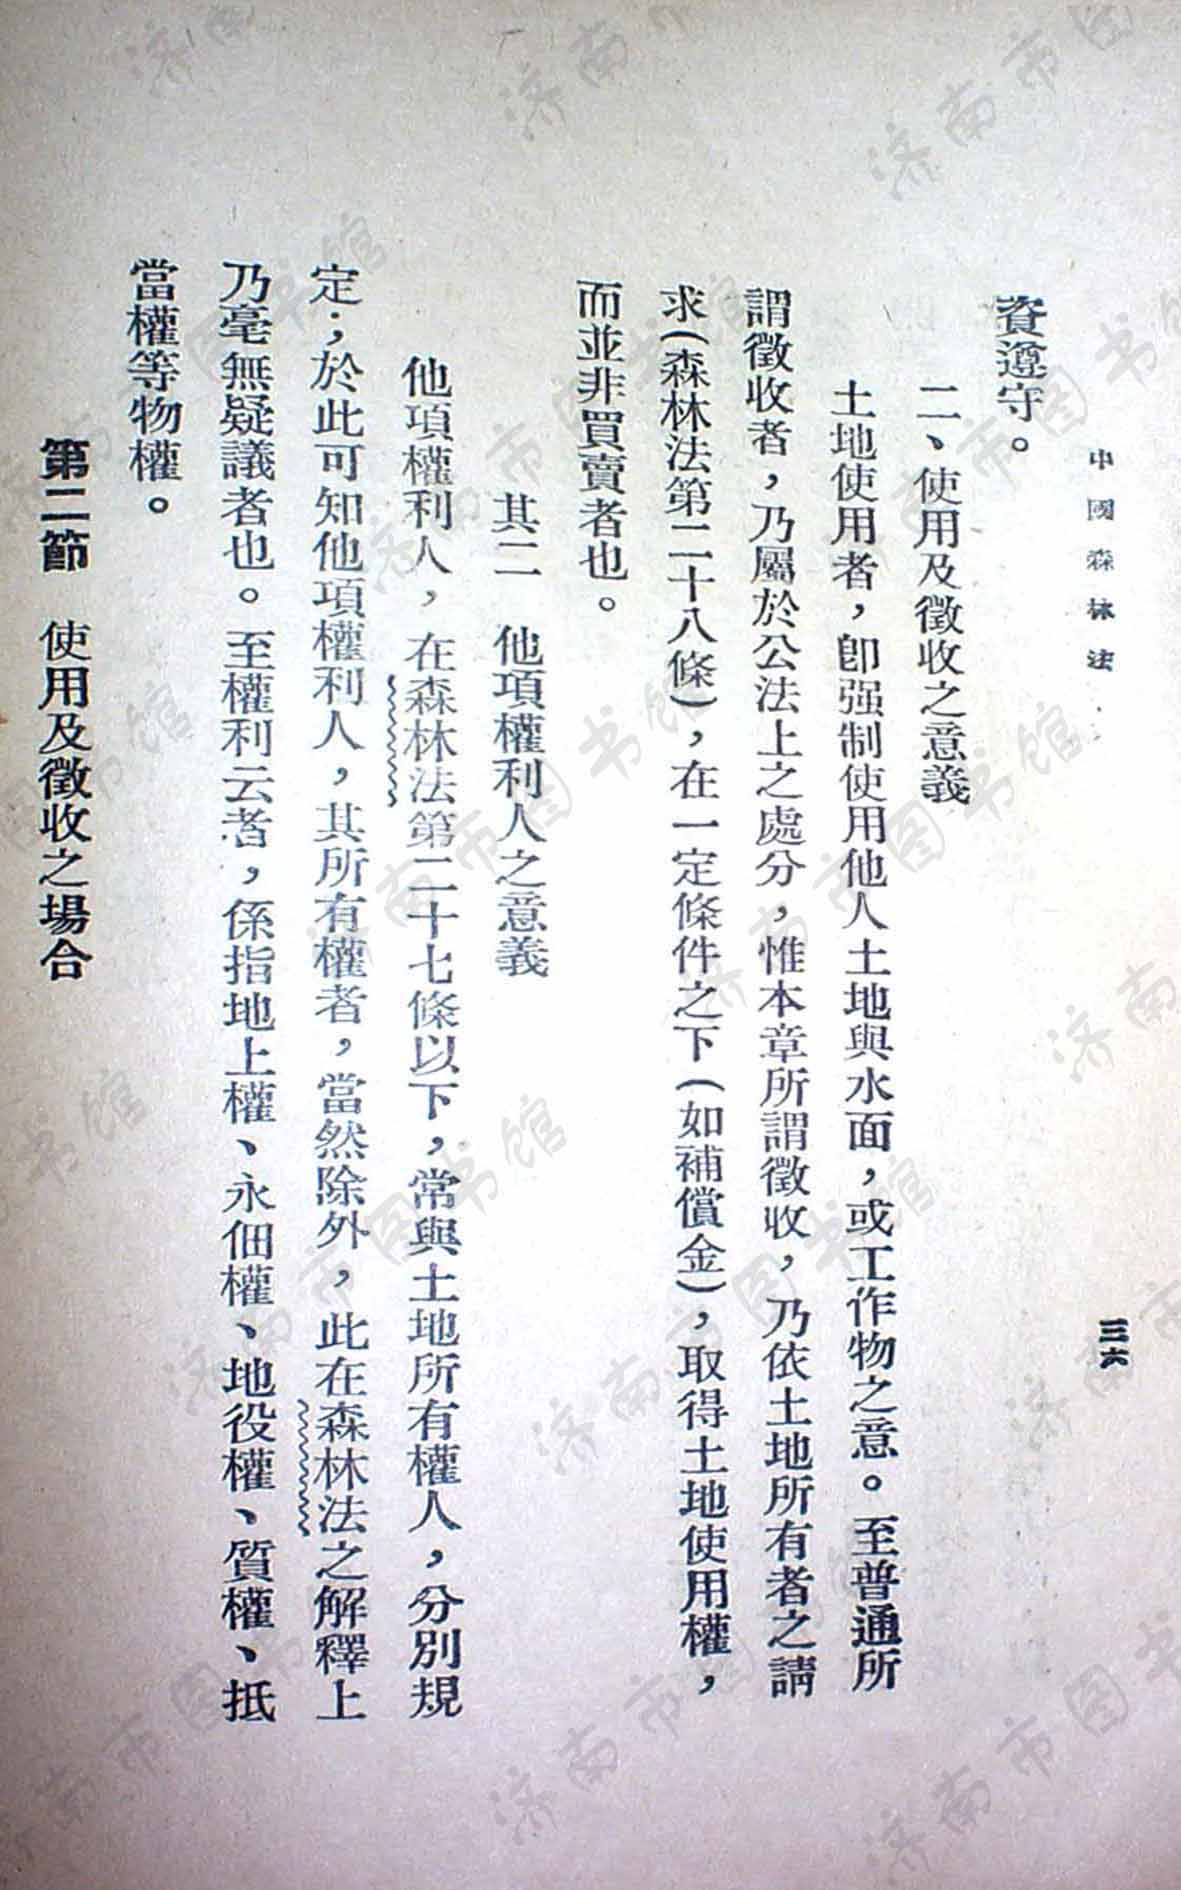 中國森林法
三六
資遵守。
二、使用及徵收之意義
土地使用者，卽强制使用他人土地與水面，或工作物之意。至普通所
謂徵收者，乃屬於公法上之處分，惟本章所謂徵收，乃依土地所有者之請
求（森林法第二十八條），在一定條件之下（如補償金），取得土地使用權，
而並非買賣者也。
其二　他項權利人之意義
他項權利人，在森林法第二十七條以下，常與土地所有權人，分別規
定；於此可知他項權利人，其所有權者，當然除外，此在森林法之解釋上
乃毫無疑議者也。至權利云者，係指地上權、永佃權、地役權、質權、抵
當權等物權。
第二節　使用及徵收之場合
济南市图书馆